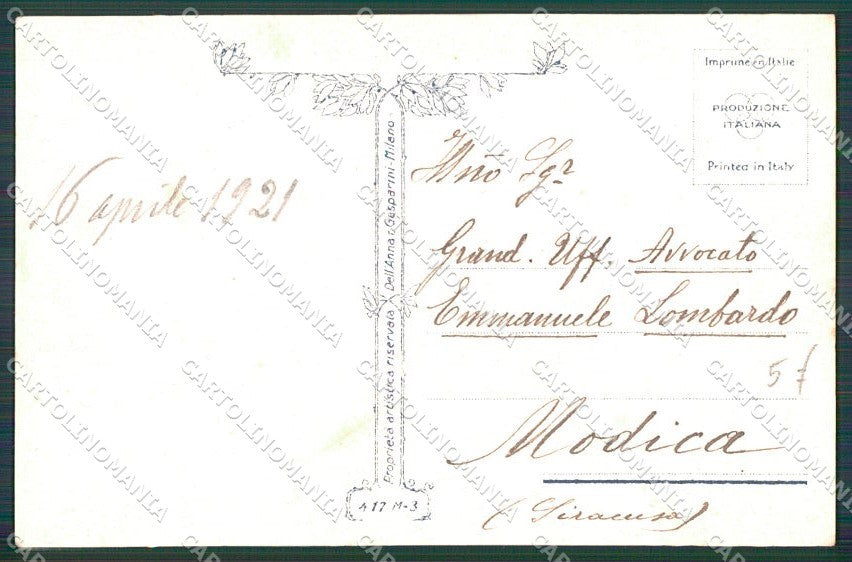 Imprimé en Italie
PRODUZIONE
ITALIANA
Printed in Italy
16 aprile 1921
Illño Sgr
Grand. Uff. Avvocato
Emmanuele Lombardo
5 f
Modica
(Siracusa)
Proprietà artistica riservata Dell'Anna & Gasparini-Milano
417 M-3
CARTOLINOMANIA